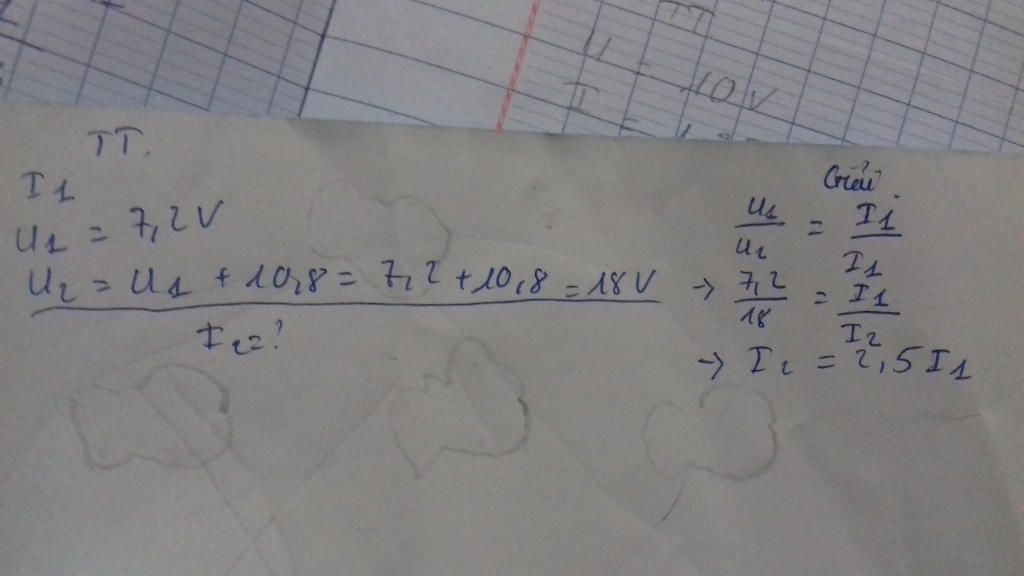 TT
U = 10V
I =
TT.
I1
U1 = 7,2V
U2 = U1 + 10,8 = 7,2 + 10,8 = 18V
I2 = ?
Giải.
U1/U2 = I1/I1
→ 7,2/18 = I1/I2
→ I2 = 2,5 I1